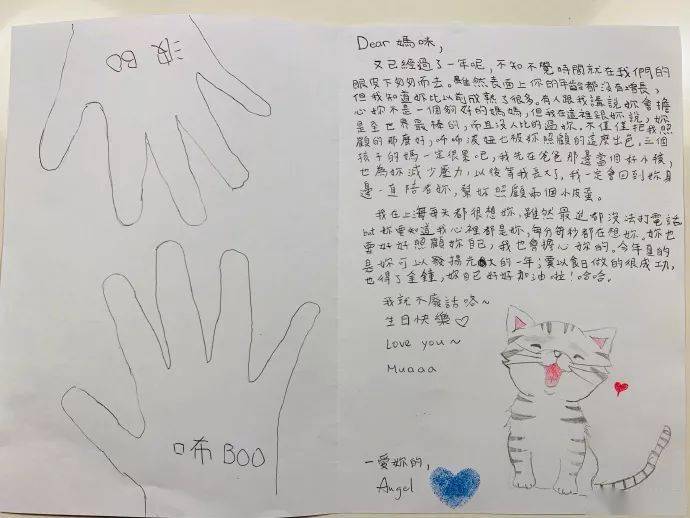 波 BO
口布 BOO
Dear 媽咪,
又已經過了一年呢，不知不覺時間就在我們的
眼皮下匆匆而去。雖然表面上你的年齡都沒有增長，
但我知道妳比以前成熟了很多。有人跟我講說妳會擔
心妳不是一個夠好的媽媽，但我在這裡跟妳說，妳
是全世界最棒的，而且沒人比的過妳。不僅僅把我照
顧的那麼好，咘咘波妞也被妳照顧的這麼出色。三個
孩子的媽一定很累吧，我先在爸爸那邊當個好小孩，
也為妳減少壓力，以後等我長大了，我一定會回到妳身
邊一直陪著妳，幫妳照顧兩個小皮蛋。
我在上海每天都很想妳，雖然最近都沒法打電話
but 妳要知道我心裡都是妳，每分每秒都在想妳。妳也
要好好照顧妳自己，我也會擔心妳的。今年真的
是妳可以發揚光大的一年；愛以食日做的很成功，
也得了金鐘，妳自己好好加油啦！哈哈。
我就不廢話咯~
生日快樂♡
Love you~
Muaaa
一愛妳的，
Angel